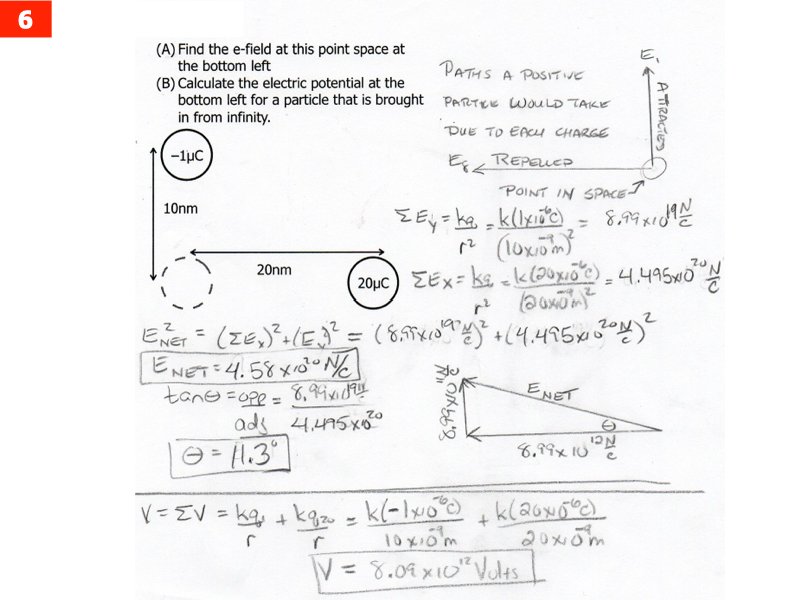 6
(A) Find the e-field at this point space at
the bottom left
(B) Calculate the electric potential at the
bottom left for a particle that is brought
in from infinity.
PATHS A POSITIVE
PARTICLE WOULD TAKE
DUE TO EACH CHARGE
E₁
ATTRACTED
REPELLED
POINT IN SPACE
−1μC
10nm
20nm
20μC
ΣE_y = kq/r² = k(1x10⁻⁶C)/(10x10⁻⁹m)² = 8.99x10¹⁹ N/C
ΣE_x = kq/r² = k(20x10⁻⁶C)/(20x10⁻⁹m)² = 4.495x10²⁰ N/C
E²_NET = (ΣE_x)² + (E_y)² = (8.99x10¹⁹ N/C)² + (4.495x10²⁰ N/C)²
E_NET = 4.58x10²⁰ N/C
tanθ = opp/adj = 8.99x10¹⁹/4.495x10²⁰
θ = 11.3°
E_NET
θ
8.99x10¹² N/C
V = ΣV = kq₁/r + kq₂₀/r = k(-1x10⁻⁶C)/10x10⁻⁹m + k(20x10⁻⁶C)/20x10⁻⁹m
V = 8.09x10¹² Volts